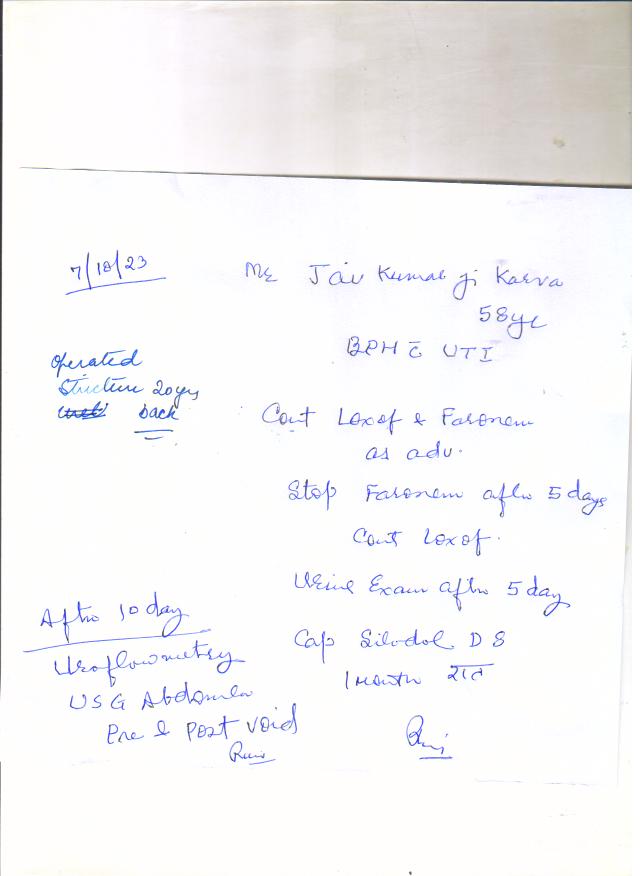 7/10/23
Mr Jai Kumar ji Karva
58 yr
BPH c̄ UTI
Operated
Stricture 20 yrs
back
Cont Loxof & Faronem
as adv.
Stop Faronem after 5 days
Cont Loxof.
Urine Exam after 5 day
Cap Silodal D 8
1 month रात
After 10 day
Uroflowmetry
USG Abdomen
Pre & Post Void